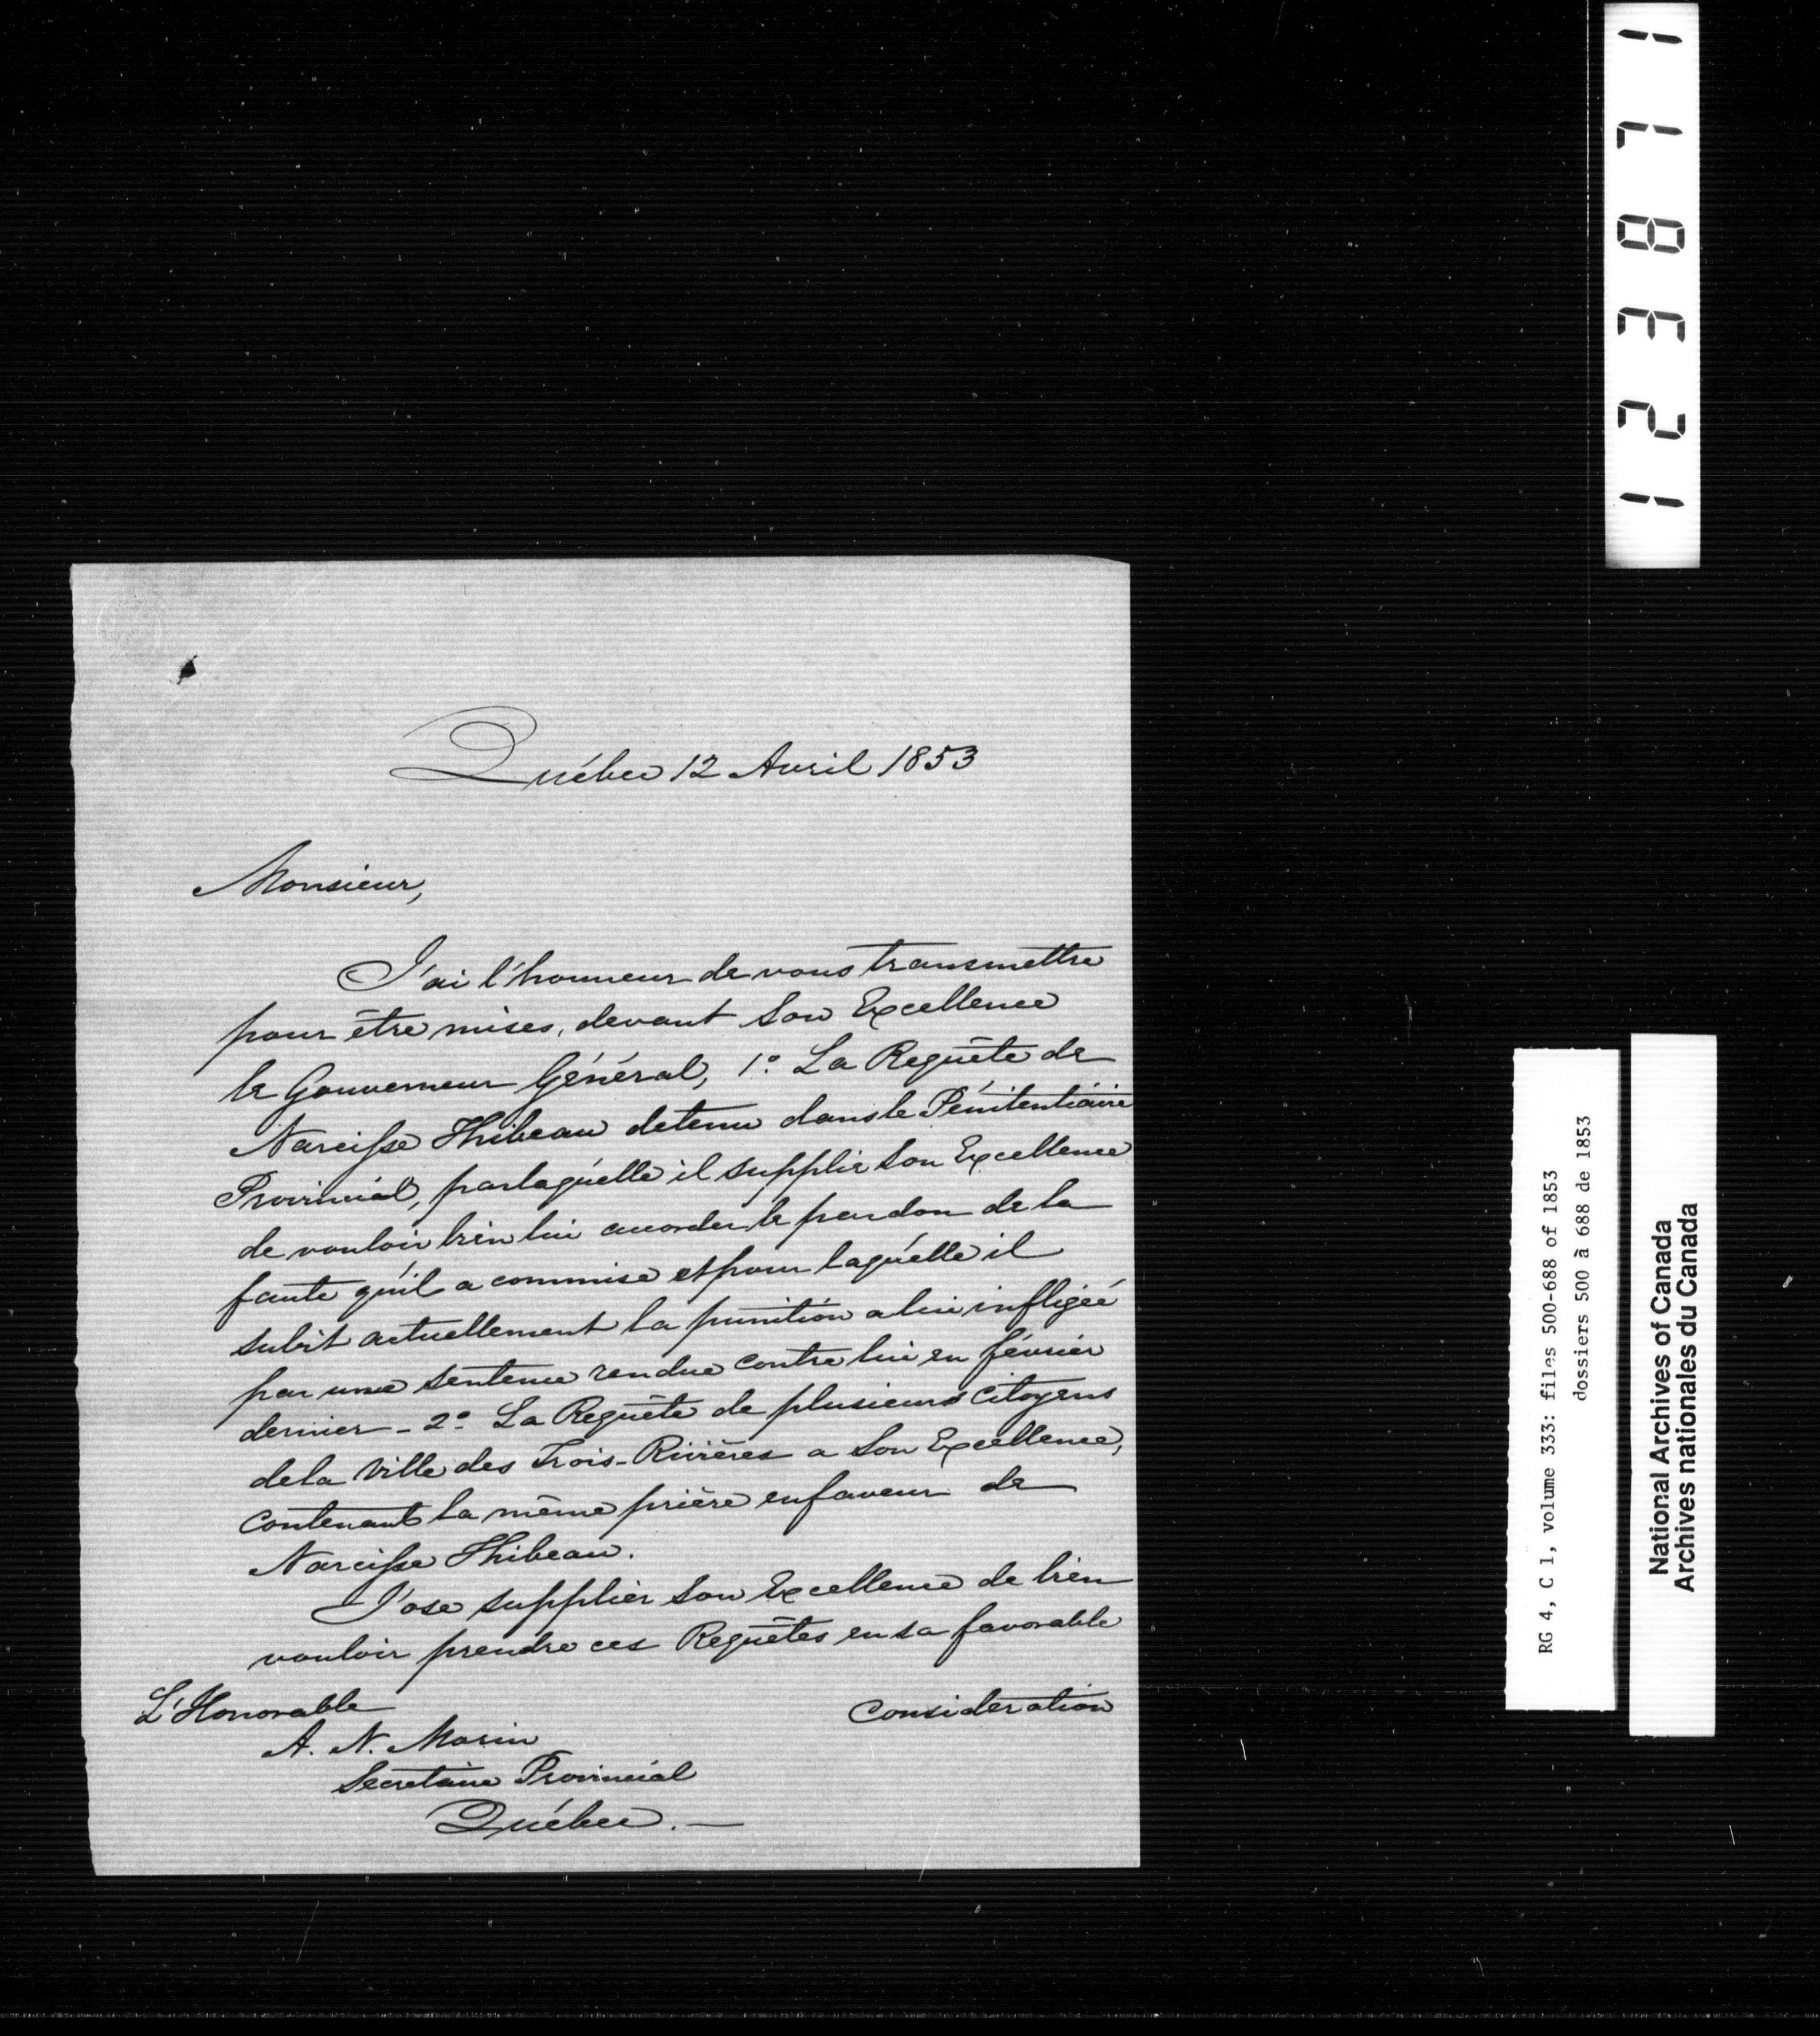 Québec 12 Avril 1853
Monsieur,
J'ai l'honneur de vous transmettre
pour être mises, devant Son Excellence
le Gouverneur Général, 1º La Requête de
Narcisse Thibeau detenu dans le Pénitentiaire
Provincial, par laquelle il supplie Son Excellence
de vouloir bien lui accorder le pardon de la
faute qu'il a commise et pour laquelle il
subit actuellement la punition a lui infligée
par une sentence rendue contre lui en février
dernier - 2º La Requête de plusieurs Citoyens
de la Ville des Trois-Rivières a Son Excellence,
contenant la même prière en faveur de
Narcisse Thibeau.
J'ose supplier Son Excellence de bien
vouloir prendre ces Requêtes en sa favorable
Consideration
L'Honorable
A. N. Morin
Secretaire Provincial
Québec. —
123871
RG 4, C 1, volume 333: files 500-688 of 1853
dossiers 500 à 688 de 1853
National Archives of Canada
Archives nationales du Canada